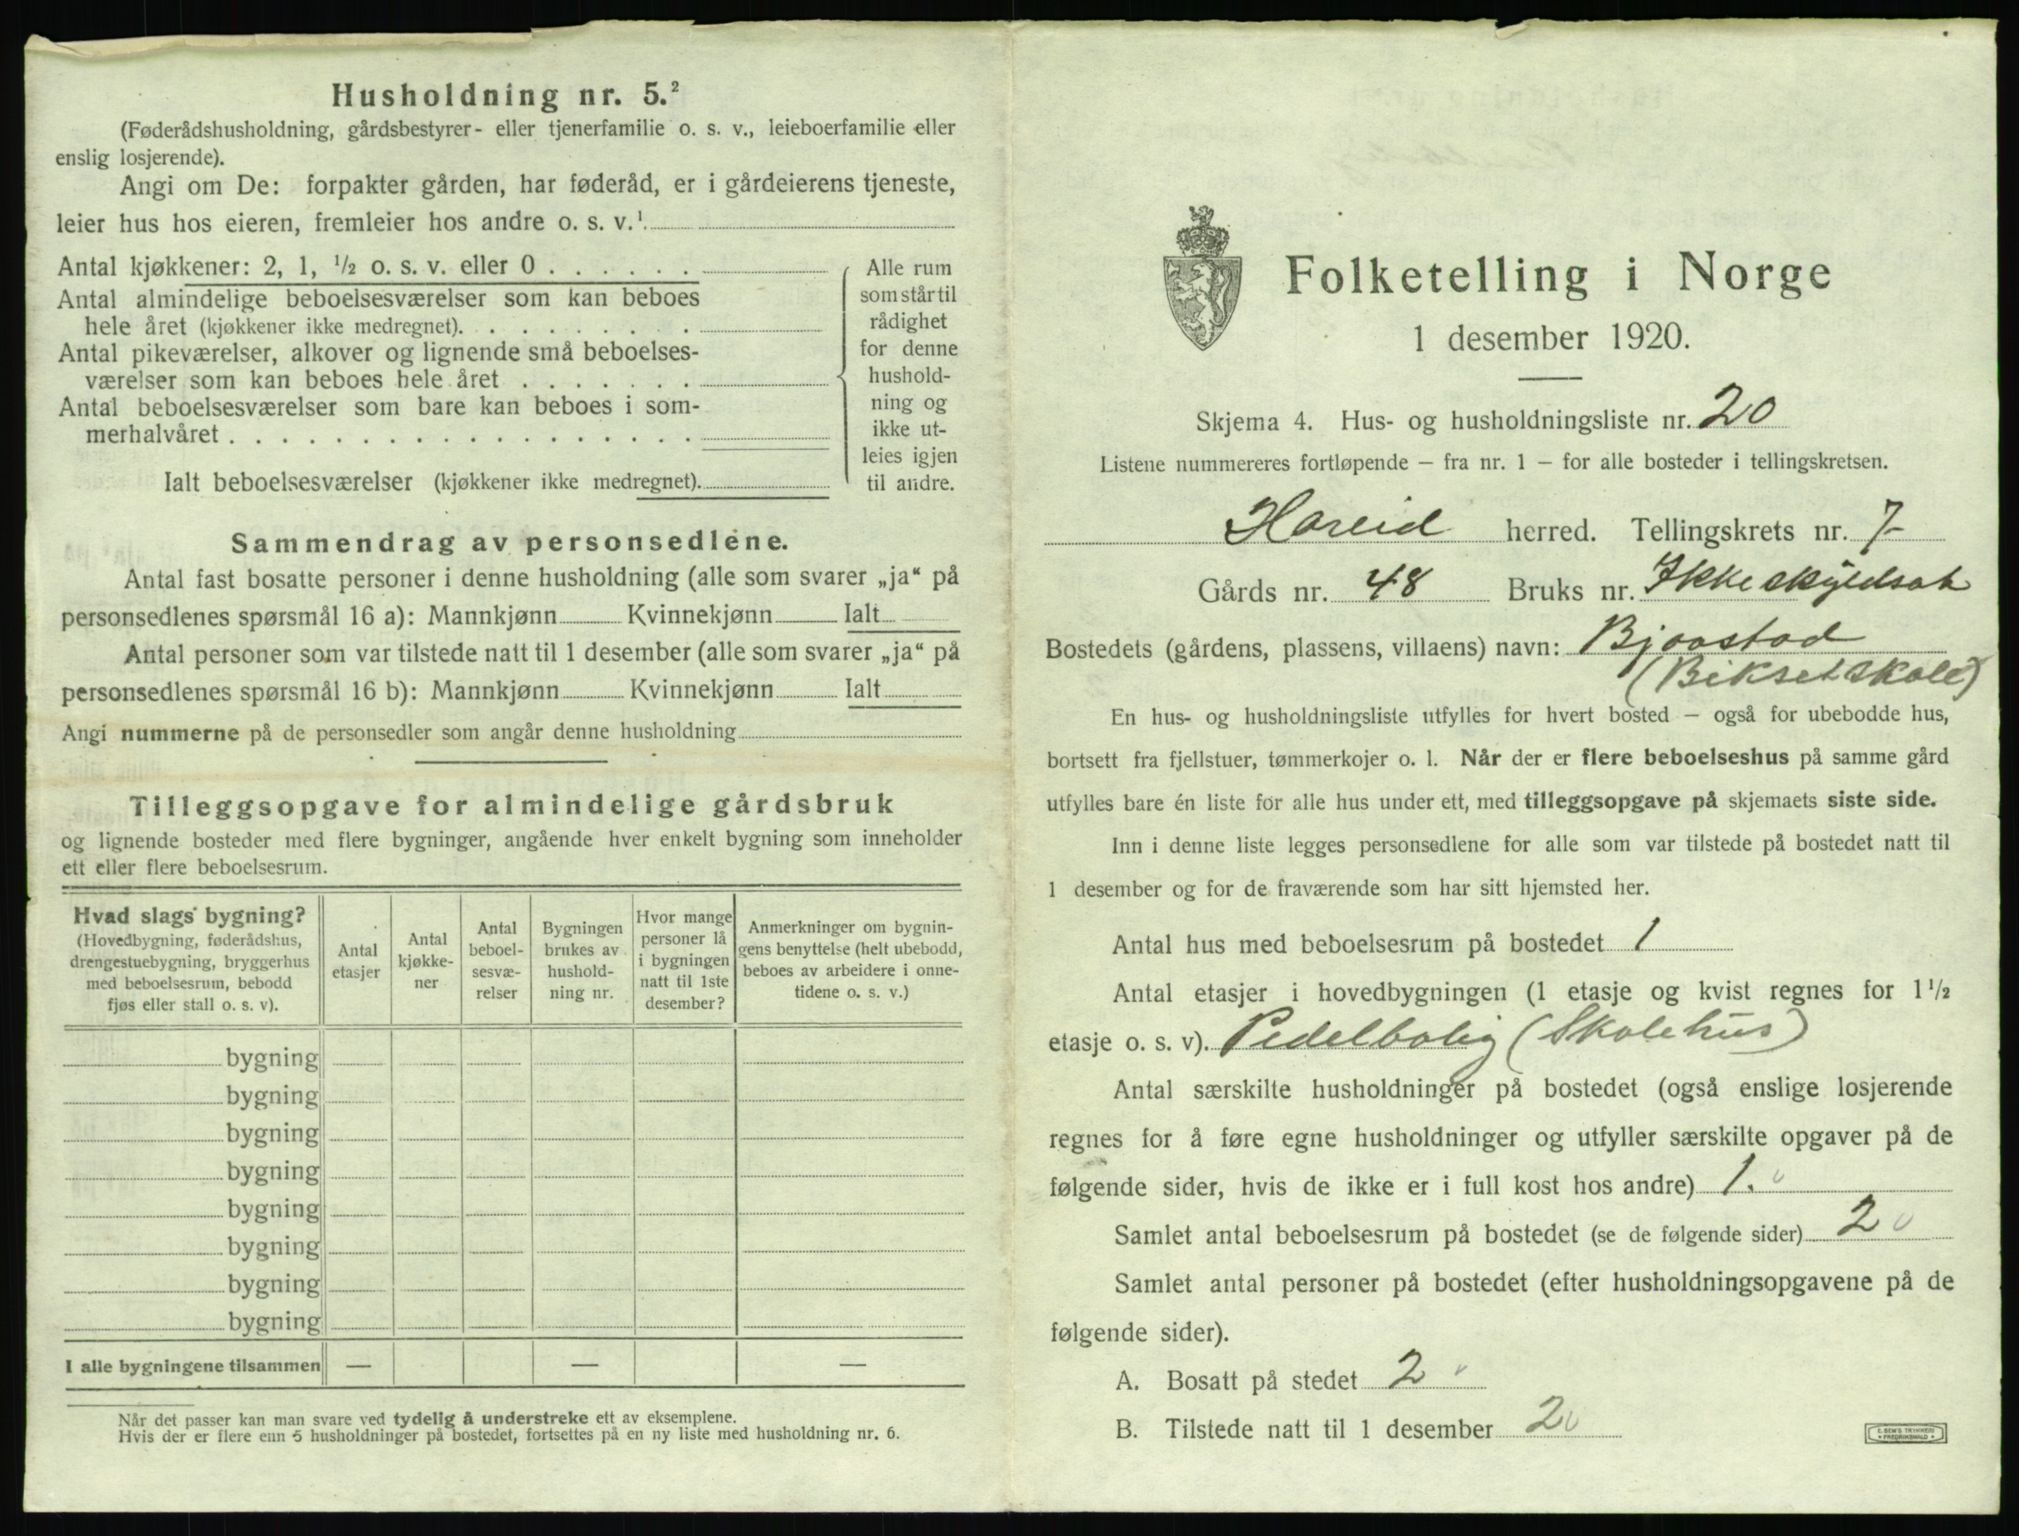 Husholdning nr. 5.²
(Føderådshusholdning, gårdsbestyrer- eller tjenerfamilie o. s. v., leieboerfamilie eller
enslig losjerende).
Angi om De: forpakter gården, har føderåd, er i gårdeierens tjeneste,
leier hus hos eieren, fremleier hos andre o. s. v.¹
Antal kjøkkener: 2, 1, ½ o. s. v. eller 0
Antal almindelige beboelsesværelser som kan beboes
hele året (kjøkkener ikke medregnet).
Antal pikeværelser, alkover og lignende små beboelses-
værelser som kan beboes hele året
Antal beboelsesværelser som bare kan beboes i som-
merhalvåret
Ialt beboelsesværelser (kjøkkener ikke medregnet).
Alle rum
som står til
rådighet
for denne
hushold-
ning og
ikke ut-
leies igjen
til andre.
Sammendrag av personsedlene.
Antal fast bosatte personer i denne husholdning (alle som svarer „ja“ på
personsedlenes spørsmål 16 a): Mannkjønn Kvinnekjønn Ialt
Antal personer som var tilstede natt til 1 desember (alle som svarer „ja“ på
personsedlenes spørsmål 16 b): Mannkjønn Kvinnekjønn Ialt
Angi nummerne på de personsedler som angår denne husholdning
Tilleggsopgave for almindelige gårdsbruk
og lignende bosteder med flere bygninger, angående hver enkelt bygning som inneholder
ett eller flere beboelsesrum.
Hvad slags bygning?
(Hovedbygning, føderådshus,
drengestuebygning, bryggerhus
med beboelsesrum, bebodd
fjøs eller stall o. s. v).
Antal
etasjer
Antal
kjøkke-
ner
Antal
beboel-
sesvæ-
relser
Bygningen
brukes av
hushold-
ning nr.
Hvor mange
personer lå
i bygningen
natt til 1ste
desember?
Anmerkninger om bygnin-
gens benyttelse (helt ubebodd,
beboes av arbeidere i onne-
tidene o. s. v.)
bygning
bygning
bygning
bygning
bygning
bygning
bygning
bygning
I alle bygningene tilsammen — — —
Når det passer kan man svare ved tydelig å understreke ett av eksemplene.
Hvis der er flere enn 5 husholdninger på bostedet, fortsettes på en ny liste med husholdning nr. 6.
Folketelling i Norge
1 desember 1920.
Skjema 4. Hus- og husholdningsliste nr. 20
Listene nummereres fortløpende – fra nr. 1 – for alle bosteder i tellingskretsen.
Hareid herred. Tellingskrets nr. 7
Gårds nr. 48 Bruks nr. Ikke skyldsat
Bostedets (gårdens, plassens, villaens) navn: Bjaastad
(Bikset skole)
En hus- og husholdningsliste utfylles for hvert bosted – også for ubebodde hus,
bortsett fra fjellstuer, tømmerkojer o. l. Når der er flere beboelseshus på samme gård
utfylles bare én liste for alle hus under ett, med tilleggsopgave på skjemaets siste side.
Inn i denne liste legges personsedlene for alle som var tilstede på bostedet natt til
1 desember og for de fraværende som har sitt hjemsted her.
Antal hus med beboelsesrum på bostedet 1
Antal etasjer i hovedbygningen (1 etasje og kvist regnes for 1 ½
etasje o. s. v). Pedelbolig (Skolehus)
Antal særskilte husholdninger på bostedet (også enslige losjerende
regnes for å føre egne husholdninger og utfyller særskilte opgaver på de
følgende sider, hvis de ikke er i full kost hos andre) 1.
Samlet antal beboelsesrum på bostedet (se de følgende sider) 2
Samlet antal personer på bostedet (efter husholdningsopgavene på de
følgende sider).
A. Bosatt på stedet 2
B. Tilstede natt til 1 desember 2